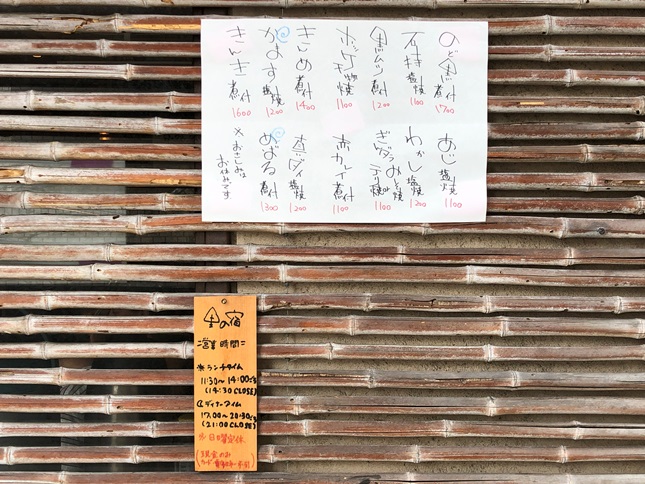 のど黒煮付
1700
石持塩焼
1100
黒ムツ煮付
1200
ホッケ干物焼
1100
きんめ煮付
1400
かます塩焼
1200
きんき煮付
1600
あじ塩焼
1100
わかし塩焼
1200
1100
赤カレイ煮付
1100
真ダイ塩焼
1200
めばる煮付
1300
×おさしみは
お休みです
の宿
=営業時間=
※ランチタイム
11:30〜14:00
(14:30 CLOSE)
ディナータイム
17:00〜20:30
(21:00 CLOSE)
日曜定休
現金のみ